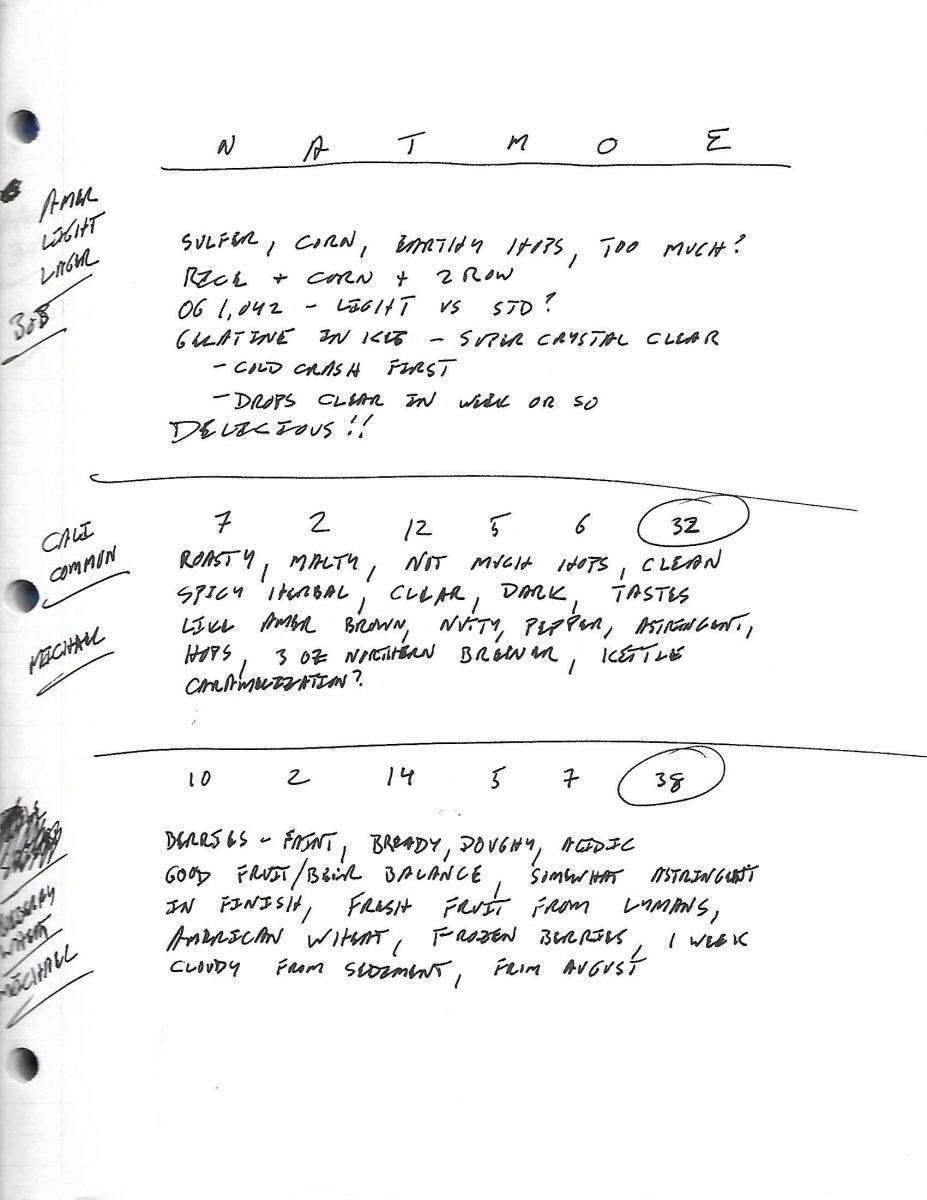 N A T M O E
AMER
LIGHT
LAGER
BOB
SULFER, CORN, EARTHY HOPS, TOO MUCH?
RICE + CORN + 2 ROW
OG 1,042 - LIGHT VS STD?
GELATINE IN KEG - SUPER CRYSTAL CLEAR
- COLD CRASH FIRST
- DROPS CLEAR IN WEEK OR SO
DELICIOUS!!
CALI
COMMON
MICHAEL
7 2 12 5 6 32
ROASTY, MALTY, NOT MUCH HOPS, CLEAN
SPICY HERBAL, CLEAR, DARK, TASTES
LIKE AMER BROWN, NUTY, PEPPER, ASTRINGENT,
HOPS, 3 OZ NORTHERN BREWER, KETTLE
CARAMELIZATION?
10 2 14 5 7 38
WHEAT
MICHAEL
BERRIES - FAINT, BREADY, DOUGHY, ACIDIC
GOOD FRUIT/BEER BALANCE, SOMEWHAT ASTRINGENT
IN FINISH, FRESH FRUIT FROM LYMANS,
AMERICAN WHEAT, FROZEN BERRIES, 1 WEEK
CLOUDY FROM SEDIMENT, FRIM AUGUST